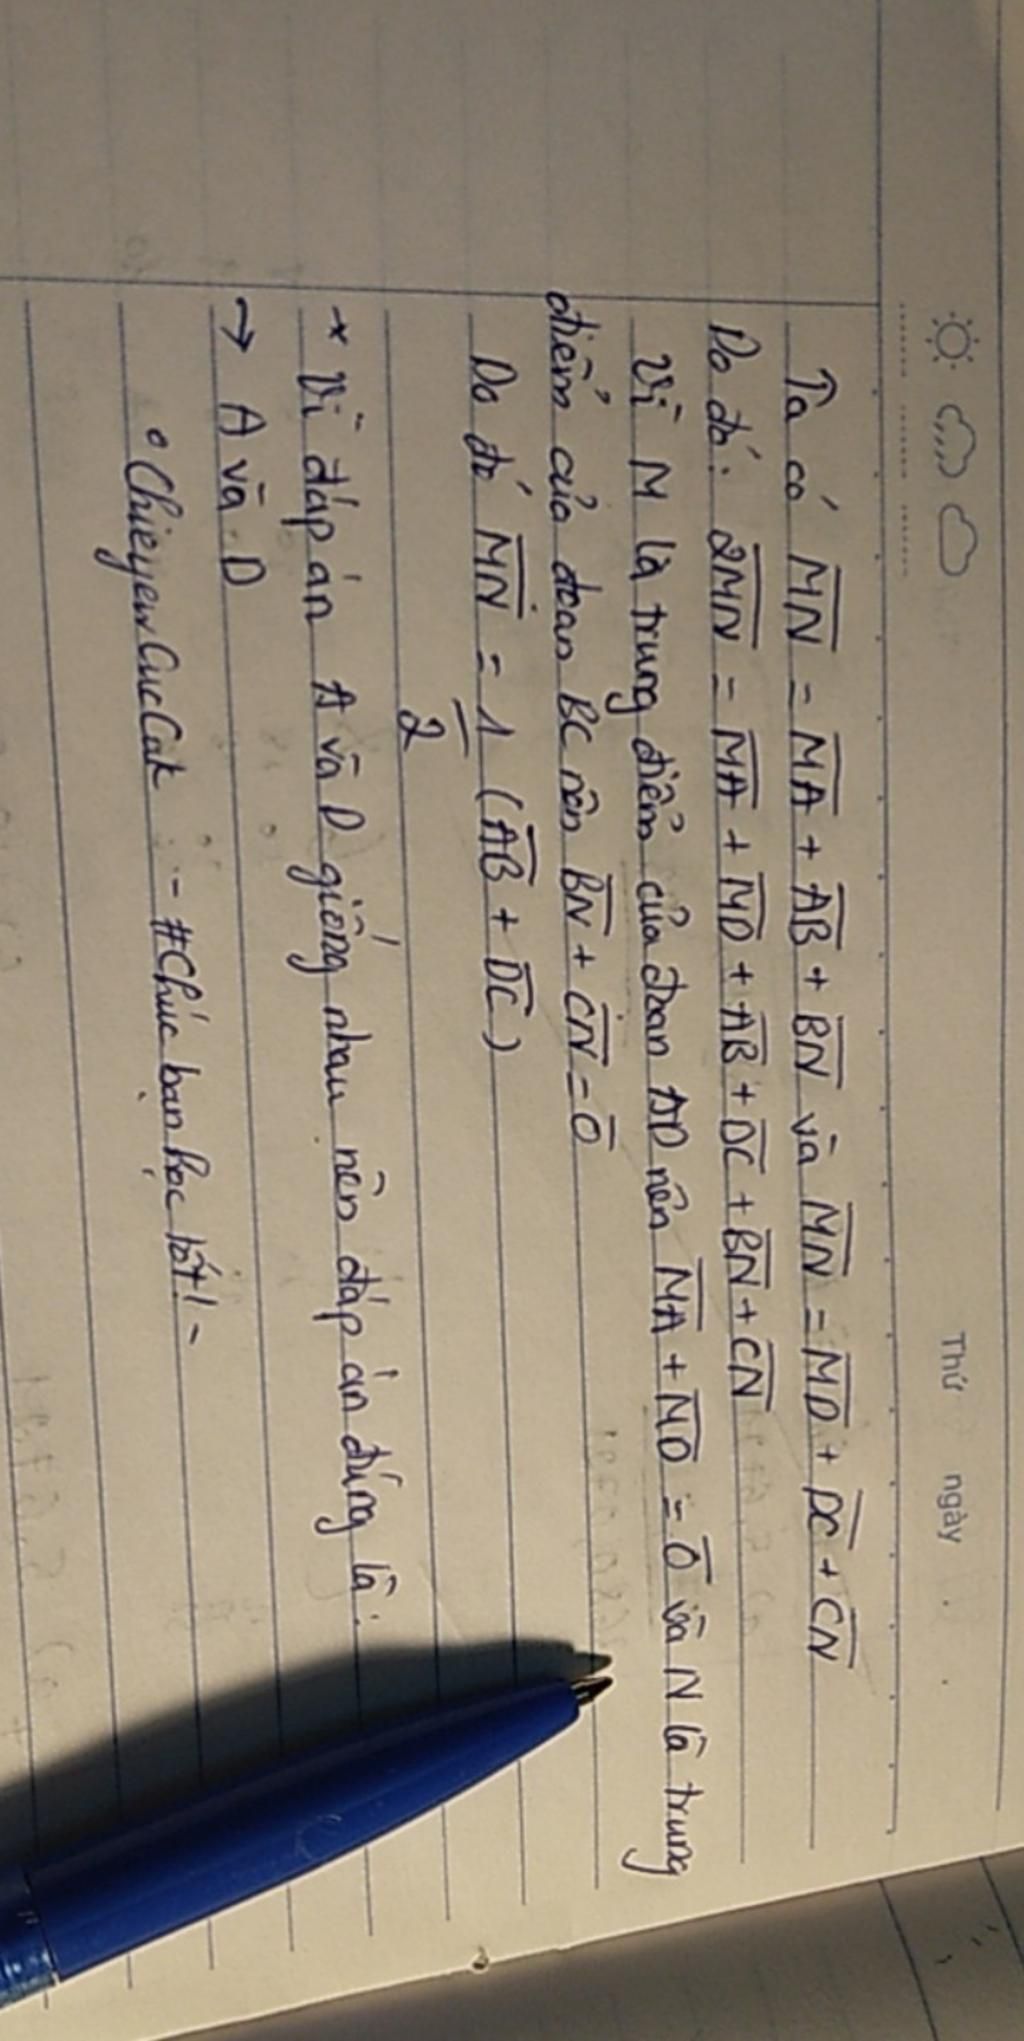 Thứ ngày
Ta có M̅N̅ = M̅A̅ + A̅B̅ + B̅N̅ và M̅N̅ = M̅D̅ + D̅C̅ + C̅N̅
Do đó: 2M̅N̅ = M̅A̅ + M̅D̅ + A̅B̅ + D̅C̅ + B̅N̅ + C̅N̅
Vì M là trung điểm của đoan AD nên M̅A̅ + M̅D̅ = 0̅ và N là trung
điểm của đoan BC nên B̅N̅ + C̅N̅ = 0̅
Do đó M̅N̅ = 1/2 (A̅B̅ + D̅C̅)
* Vì đáp án A và D giống nhau nên đáp án đúng là:
→ A và D
° ChieyewCucCak :- #Chúc bạn học tốt! -